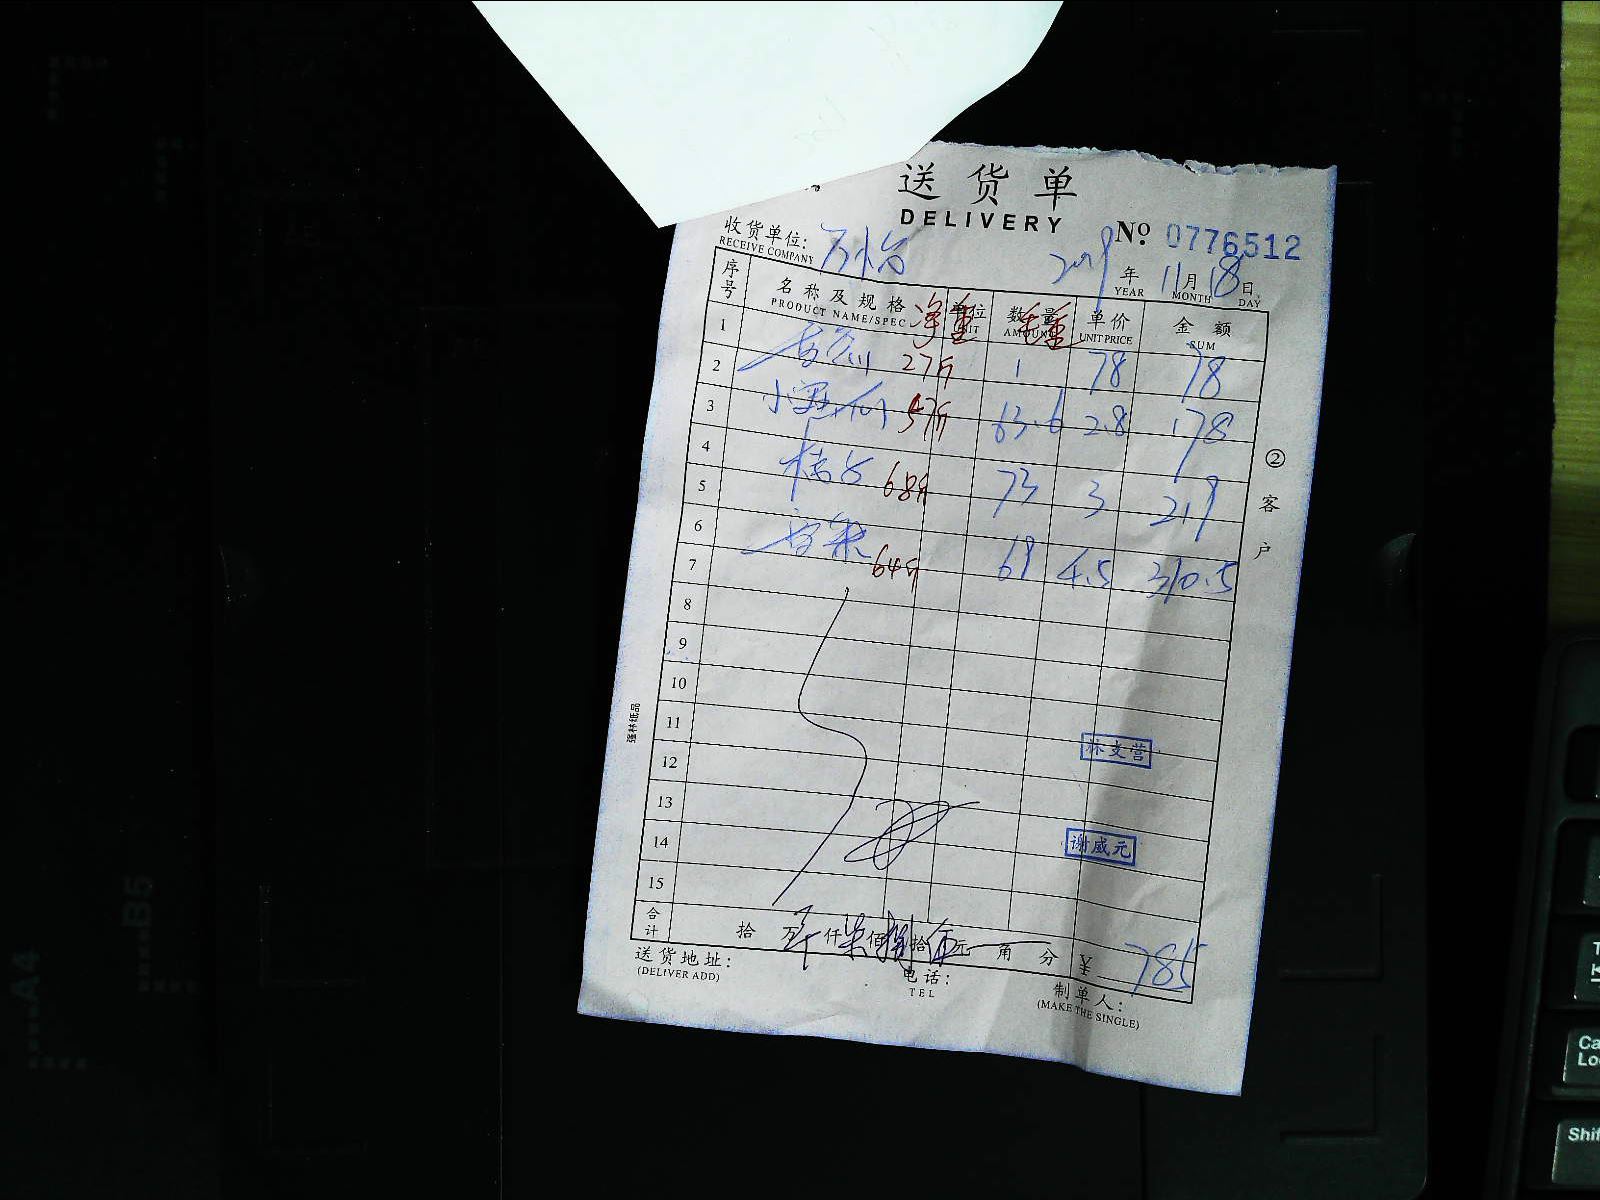 送货单
DELIVERY
No 0776512
收货单位:
RECEIVE COMPANY
2019 年 11 月 18 日
YEAR MONTH DAY
序号 名称及规格 净重 单位 数量 毛重 单价 金额
PRODUCT NAME/SPEC UNIT AMOUNT UNIT PRICE SUM
1
27斤 1 78 78
2
小西 57斤 63.6 2.8 178
3
4
68斤 73 3 219
5
6
64斤 69 4.5 310.5
7
8
9
10
11
林文营
12
13
14
谢威元
15
合计 拾 万 仟 柒 佰 捌 拾 伍 元 角 分 ¥ 785
送货地址:
(DELIVER ADD)
电话:
TEL
制单人:
(MAKE THE SINGLE)
②客户
强林纸品
A4
B5
Shif